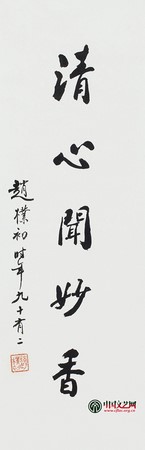 清心聞妙香
趙樸初時年九十有二
中国文艺网
www.cflac.org.cn